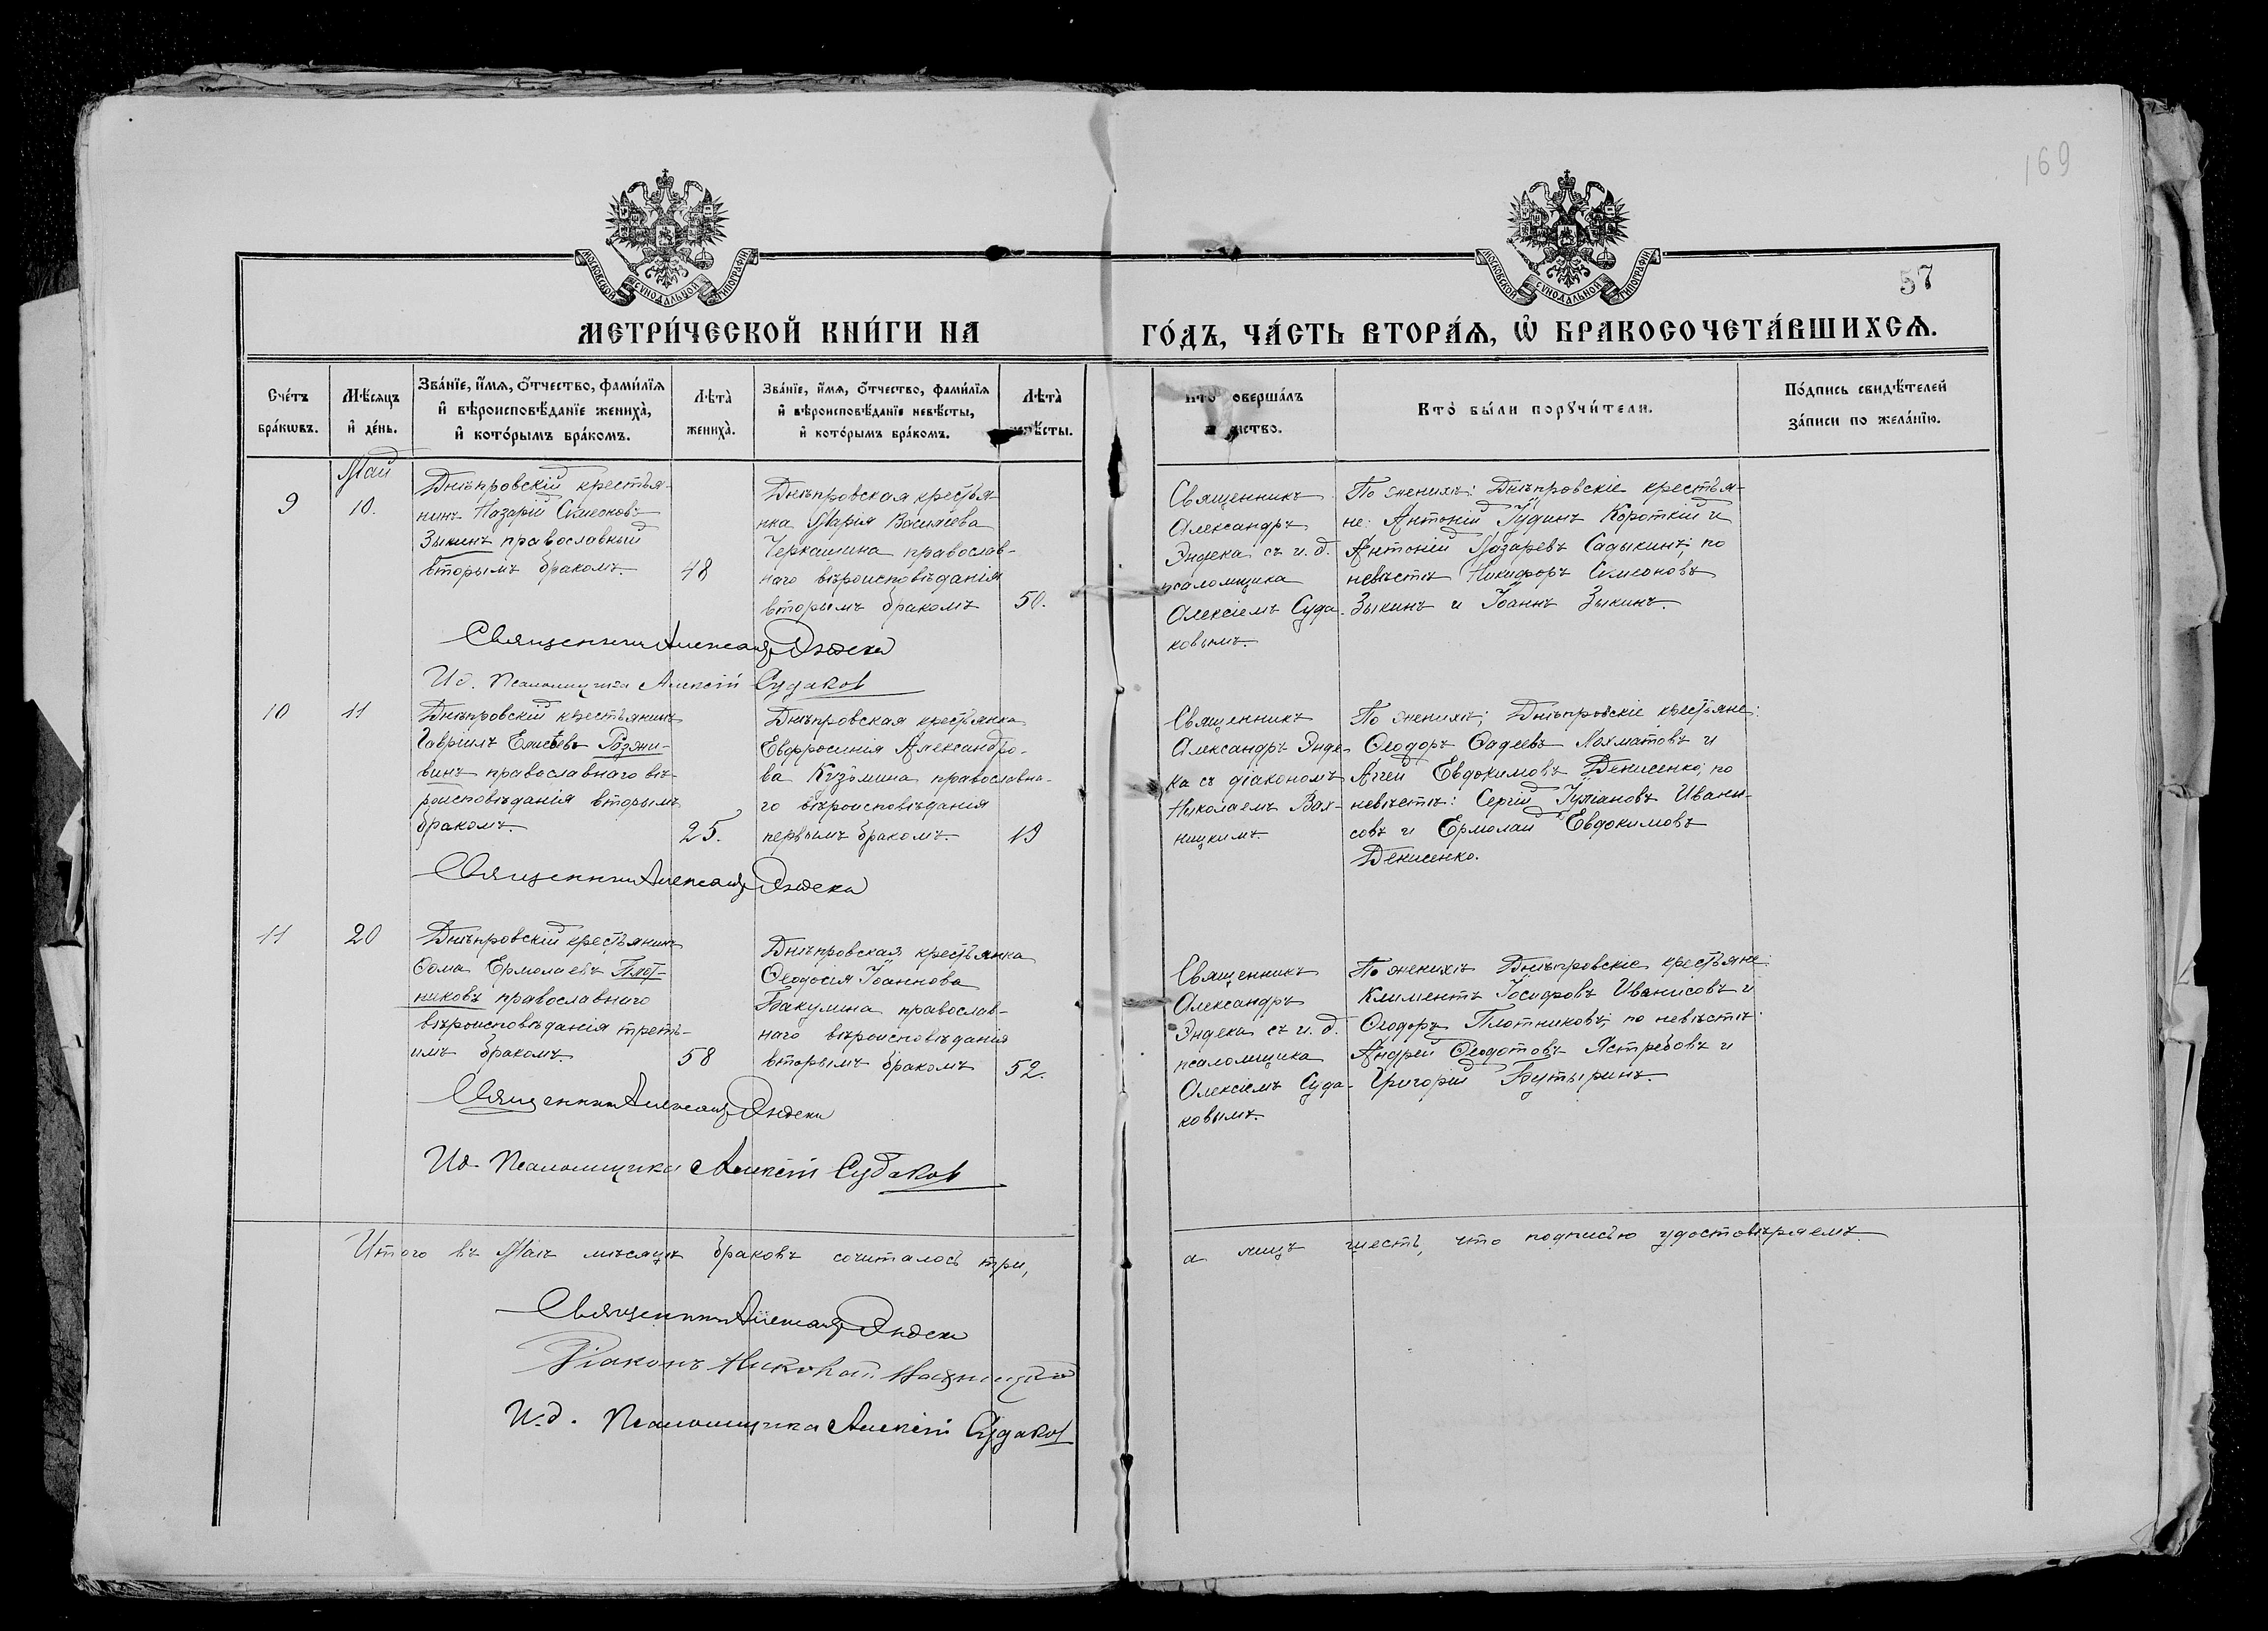 169
МОСКОВСКОЙ СѴНОДАЛЬНОЙ ТИПОГРАФІИ
МОСКОВСКОЙ СѴНОДАЛЬНОЙ ТИПОГРАФІИ
57
МЕТРИ́ЧЕСКОЙ КНИ́ГИ НА
ГО́ДЪ, ЧА́СТЬ ВТОРА́Ѧ, Ѡ БРАКОСОЧЕТА́ВШИХСѦ.
Сче́тъ
бра́кѡвъ.
Мѣ́сяцъ
и҆ де́нь.
Зва́нїе, и҆́мѧ, ѻ҆́тчество, фами́лїѧ
и҆ вѣроисповѣ́данїе жениха̀,
и҆ кото́рымъ бра́комъ.
Лѣта̀
жениха̀.
Зва́нїе, и҆́мѧ, ѻ҆́тчество, фами́лїѧ
и҆ вѣроисповѣ́данїе невѣ́сты,
и҆ кото́рымъ бра́комъ.
Лѣта̀
невѣ́сты.
Кто̀ соверша́лъ
таинство.
Кто̀ бы́ли порꙋчи́тели.
По́дпись свидѣ́телей
за́писи по жела́нїю.
Май
9
10.
Днѣпровскій крестья-
нинъ Назарій Симеоновъ
Зыкинъ православный
вторымъ бракомъ.
48
Днѣпровская крестья
нка Марія Василiева
Черкашина православ-
наго вѣроисповѣданія
вторымъ бракомъ
50.
Священникъ
Александръ
Эндека съ и. д.
псаломщика
Алексіемъ Суда-
ковымъ.
По женихѣ: Днѣпровскіе крестья-
не: Антоній Гудинъ Короткій и
Антоній Лазаревъ Садыкинъ; по
невѣстѣ Никифоръ Симеоновъ
Зыкинъ и Іоаннъ Зыкинъ.
Священникъ Александръ Эндека
И.д. Псаломщика Алексій Судаковъ
10
11
Днѣпровскій крестьянинъ
Гавріилъ Елисѣевъ Разжи-
винъ православнаго вѣ-
роисповѣданія вторымъ
бракомъ.
25.
Днѣпровская крестьянка
Евфросинія Александро-
ва Кузьмина православна-
го вѣроисповѣданія
первымъ бракомъ.
19
Священникъ
Александръ Энде-
ка съ діакономъ
Николаемъ Вах-
ницкимъ.
По женихѣ; Днѣпровскіе крестьяне:
Ѳеодоръ Ѳадеевъ Лохматовъ и
Аггей Евдокимовъ Денисенко; по
невѣстѣ: Сергій Іуліановъ Ивани-
совъ и Ермолай Евдокимовъ
Денисенко.
Священникъ Александръ Эндека
11
20
Днѣпровскій крестьянинъ
Ѳома Ермолаевъ Плот-
никовъ православнаго
вѣроисповѣданія треть-
имъ бракомъ
58
Днѣпровская крестьянка
Ѳеодосія Іоаннова
Бакулина православ-
наго вѣроисповѣданія
вторымъ бракомъ
52.
Священникъ
Александръ
Эндека съ и. д.
псаломщика
Алексіемъ Суда-
ковымъ.
По женихѣ Днѣпровскіе крестьяне:
Климентъ Іосифовъ Иванисовъ и
Ѳеодоръ Плотниковъ; по невѣстѣ:
Андрей Ѳеодотовъ Ястребовъ и
Григорій Бутыринъ.
Священникъ Александръ Эндека
И.д. Псаломщика Алексій Судаковъ
Итого въ Маѣ мѣсяцѣ браковъ сочиталось три,
а лицъ шесть, что подписью удостовѣряемъ.
Священникъ Александръ Эндека
Діаконъ Николай Вахницкій
И.д. Псаломщика Алексій Судаковъ